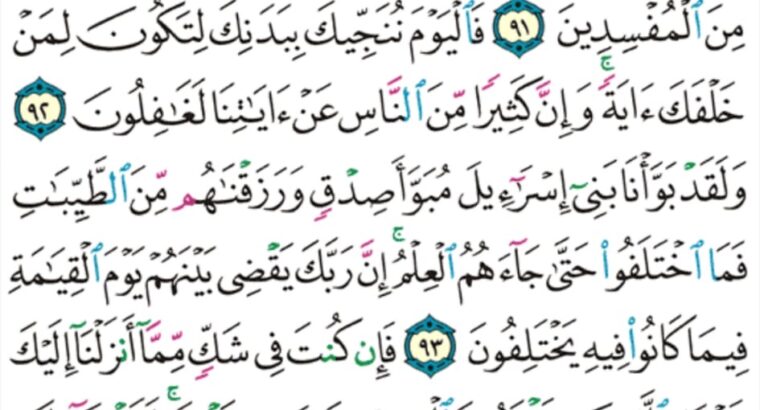 مِنَ ٱلۡمُفۡسِدِينَ ٩١ فَٱلۡيَوۡمَ نُنَجِّيكَ بِبَدَنِكَ لِتَكُونَ لِمَنۡ
خَلۡفَكَ ءَايَةٗۚ وَإِنَّ كَثِيرٗا مِّنَ ٱلنَّاسِ عَنۡ ءَايَٰتِنَا لَغَٰفِلُونَ ٩٢
وَلَقَدۡ بَوَّأۡنَا بَنِيٓ إِسۡرَٰٓءِيلَ مُبَوَّأَ صِدۡقٖ وَرَزَقۡنَٰهُم مِّنَ ٱلطَّيِّبَٰتِ
فَمَا ٱخۡتَلَفُواْ حَتَّىٰ جَآءَهُمُ ٱلۡعِلۡمُۚ إِنَّ رَبَّكَ يَقۡضِي بَيۡنَهُمۡ يَوۡمَ ٱلۡقِيَٰمَةِ
فِيمَا كَانُواْ فِيهِ يَخۡتَلِفُونَ ٩٣ فَإِن كُنتَ فِي شَكّٖ مِّمَّآ أَنزَلۡنَآ إِلَيۡكَ